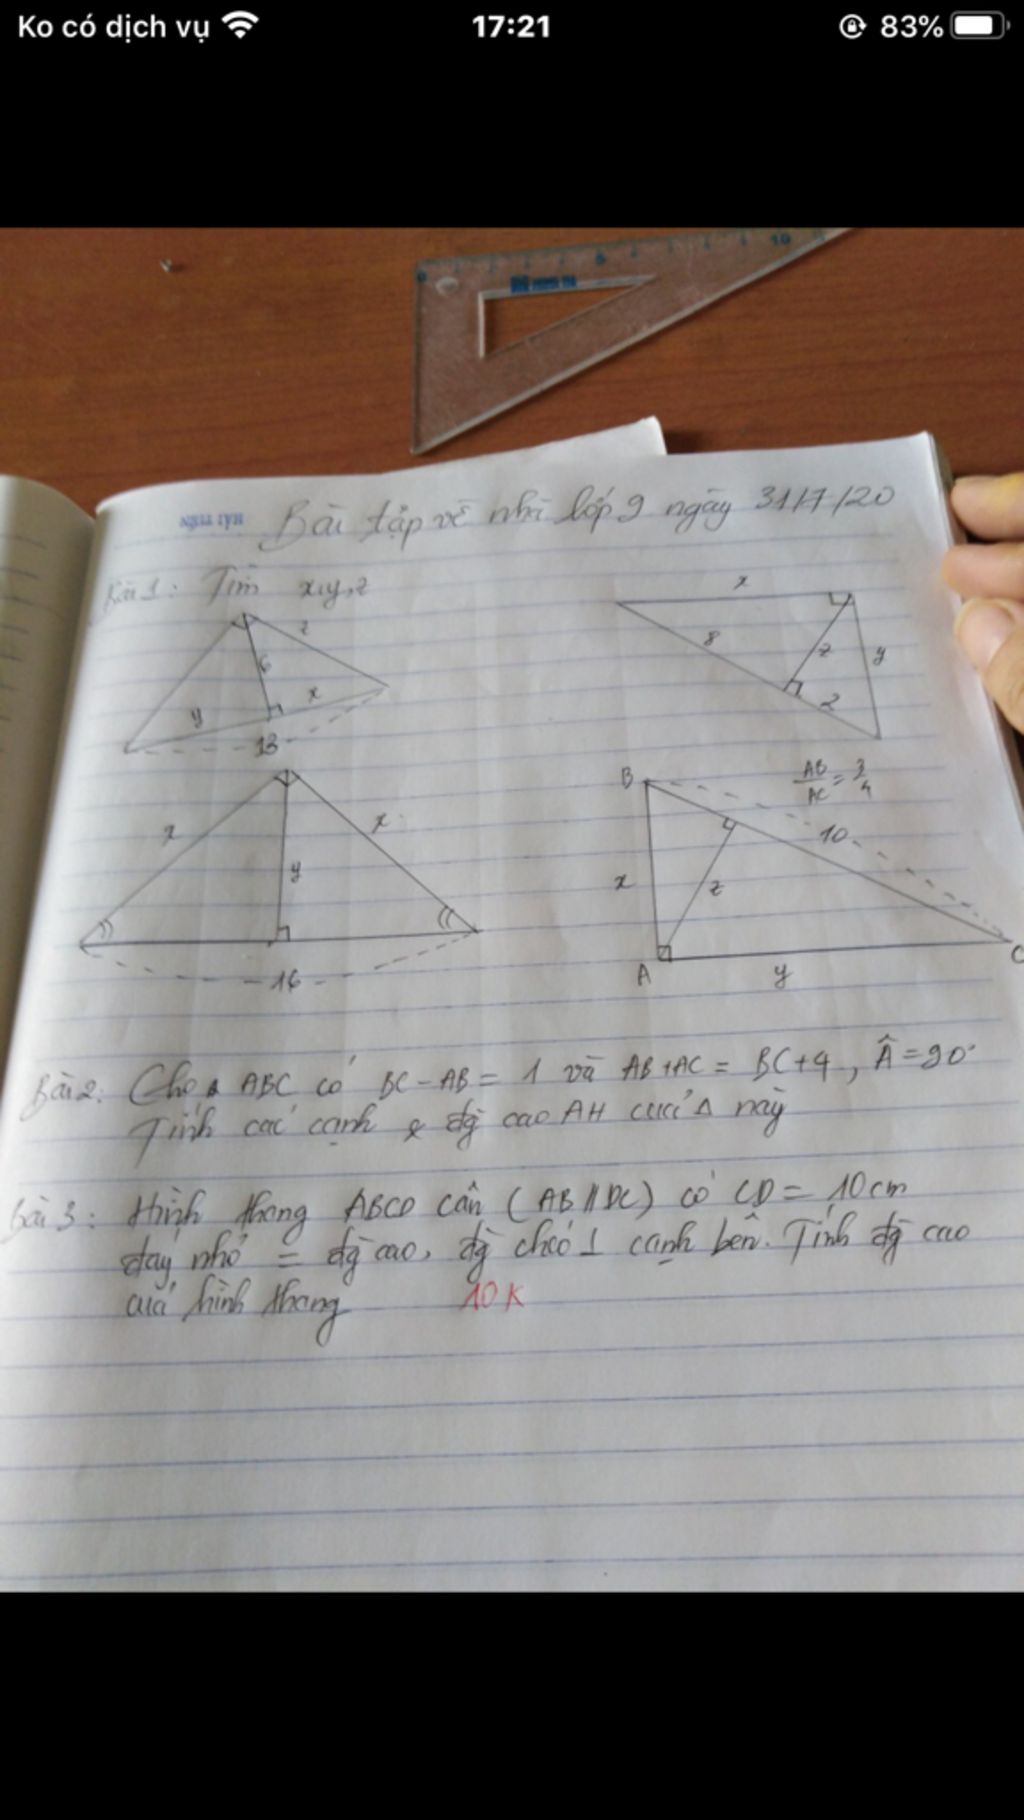 Ko có dịch vụ 17:21 83%
0 5 10
HẢI TIẾN
Bài tập về nhà lớp 9 ngày 31/7/20
Bài 1: Tìm x,y,z
x
z
8
6
z
y
x
y
2
13
B
AB/AC = 3/4
x
x
10
y
x
z
A
y
C
16
Bài 2: Cho Δ ABC có BC - AB = 1 và AB + AC = BC + 4, Â = 90°
Tính các cạnh & đg cao AH của Δ này
Bài 3: Hình thang ABCD cân (AB // DC) có CD = 10cm
đáy nhỏ = đg cao, đg chéo ⊥ cạnh bên. Tính đg cao
của hình thang 10K